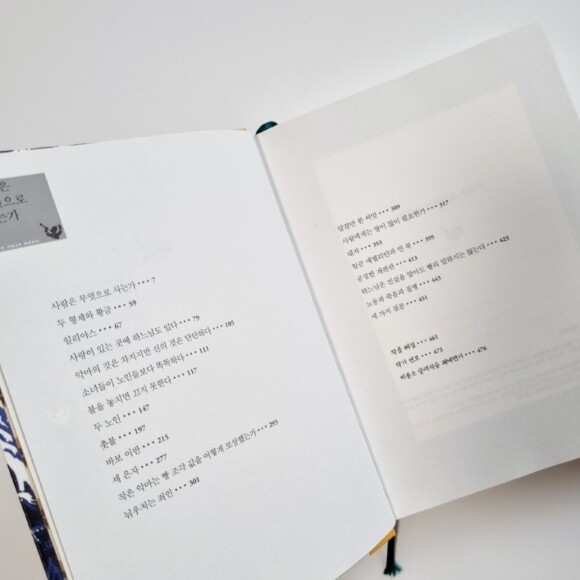 은
으로
는가
사람은 무엇으로 사는가 ••• 7
두 형제와 황금 ••• 59
일리야스 ••• 67
사랑이 있는 곳에 하느님도 있다 ••• 79
악마의 것은 차지지만 신의 것은 단단하다 ••• 105
소녀들이 노인들보다 똑똑하다 ••• 111
불을 놓치면 끄지 못한다 ••• 117
두 노인 ••• 147
촛불 ••• 197
바보 이반 ••• 215
세 은자 ••• 277
작은 악마는 빵 조각 값을 어떻게 보상했는가 ••• 295
뉘우치는 죄인 ••• 301
달걀만 한 씨앗 ••• 309
사람에게는 땅이 많이 필요한가 ••• 317
대자 ••• 353
일꾼 예멜리얀과 빈 북 ••• 395
공정한 재판관 ••• 413
하느님은 진실을 알아도 빨리 말하지는 않는다 ••• 423
노동과 죽음과 질병 ••• 443
세 가지 질문 ••• 451
작품 해설 ••• 461
작가 연보 ••• 473